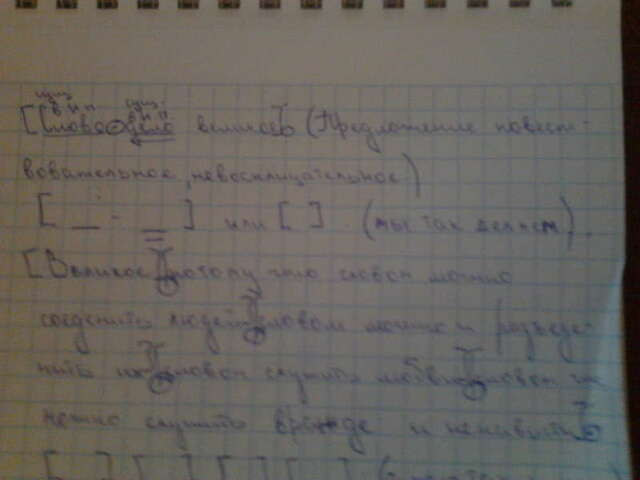 сущ сущ
в и п в и п
[Слово - дело великое (Предложение повест-
вовательное, невосклицательное)
[ _ - = ] или [ ] (мы так делаем).
[Великое потому что словом можно
соеденить людей словом можно и разъеде-
нить их словом служить любви словом
но служить вражде и ненависти
[ ] [ ] [ ] [ ]